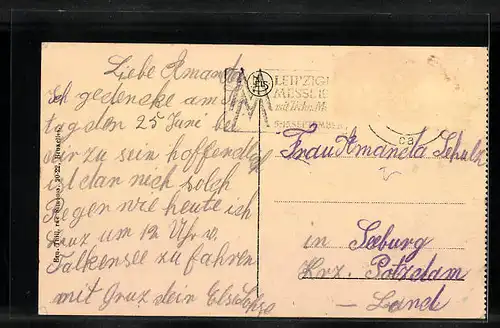 Liebe Amanda
Ich gedenke am
tag den 25 Juni bei
dir zu sein hoffendlich
ist dan nich solch
Regen wie heute ich
um 12 Uhr v.
Falkensee zu fahren
mit Gruz dein
LEIPZIG
MESSE
Frau Amanda Schulz
in Seeburg
Krz. Potzdam
– Land